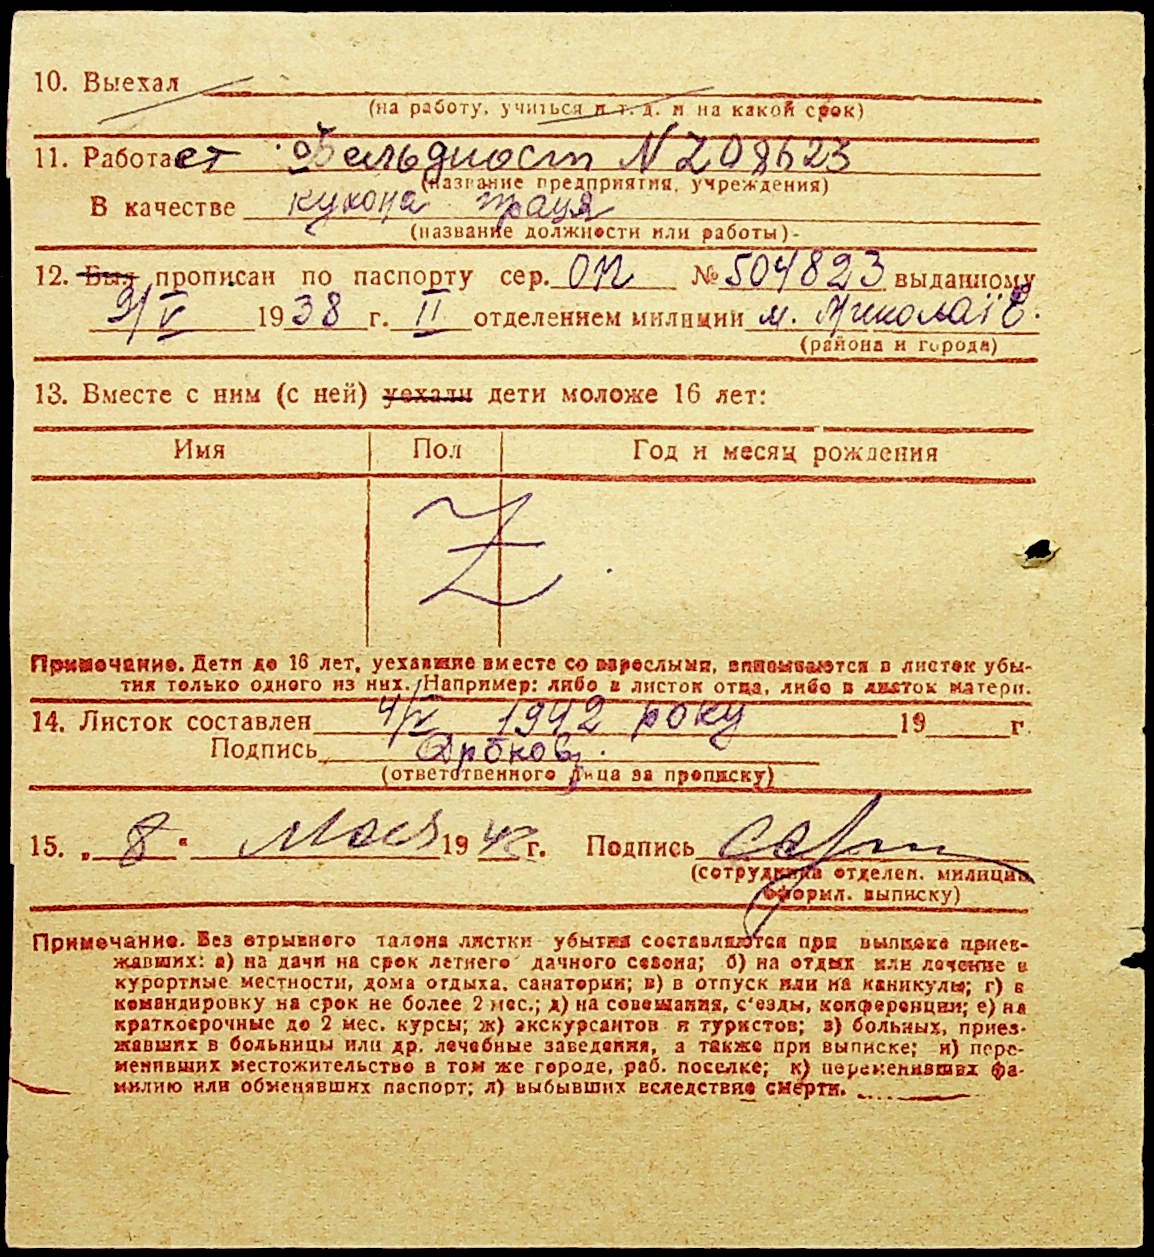 10. Выехал
(на работу, учиться и т. д. и на какой срок)
11. Работает Фельдпост N 208623
(название предприятия, учреждения)
В качестве кухона праця
(название должности или работы)
12. Был прописан по паспорту сер. ОП № 504823 выданному
9/V 1938 г. II отделением милиции м. Миколаїв.
(района и города)
13. Вместе с ним (с ней) уехали дети моложе 16 лет:
Имя Пол Год и месяц рождения
Z
Примечание. Дети до 16 лет, уехавшие вместе со взрослыми, вписываются в листок убы-
тия только одного из них. Например: либо в листок отца, либо в листок матери.
14. Листок составлен 4/V 1942 року 19 г.
Подпись
(ответственного лица за прописку)
15. „ 8 “ 19 42 г. Подпись
(сотрудника отделен. милиции
оформл. выписку)
Примечание. Без отрывного талона листки убытия составляются при выписке приез-
жавших: а) на дачи на срок летнего дачного сезона; б) на отдых или лечение в
курортные местности, дома отдыха, санатории; в) в отпуск или на каникулы; г) в
командировку на срок не более 2 мес.; д) на совещания, с'езды, конференции; е) на
краткосрочные до 2 мес. курсы; ж) экскурсантов и туристов; з) больных, приез-
жавших в больницы или др. лечебные заведения, а также при выписке; и) пере-
менивших местожительство в том же городе, раб. поселке; к) переменивших фа-
милию или обменявших паспорт; л) выбывших вследствие смерти.